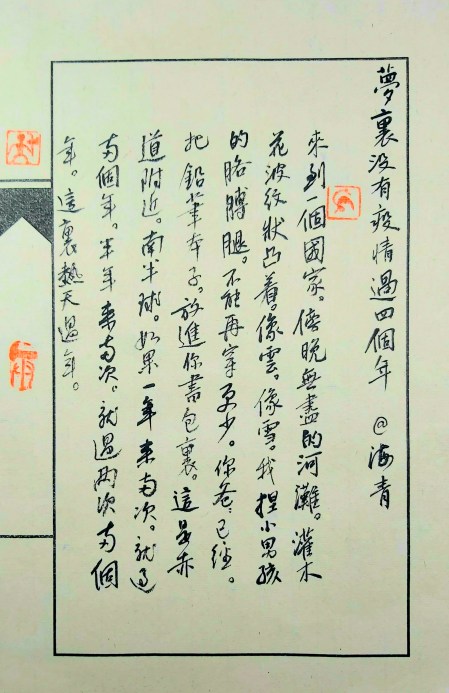 夢裏没有疫情過四個年 @海青
來到一個國家。傍晚無盡的河灘。灌木
花波紋狀凸着。像雲。像雪。我捏小男孩
的胳膊腿。不能再穿更少。你爸已经。
把鉛筆本子。放進你書包裏。這是赤
道附近。南半球。如果一年来两次。就過
两個年。半年来两次。就過兩次两個
年。這裏熱天過年。